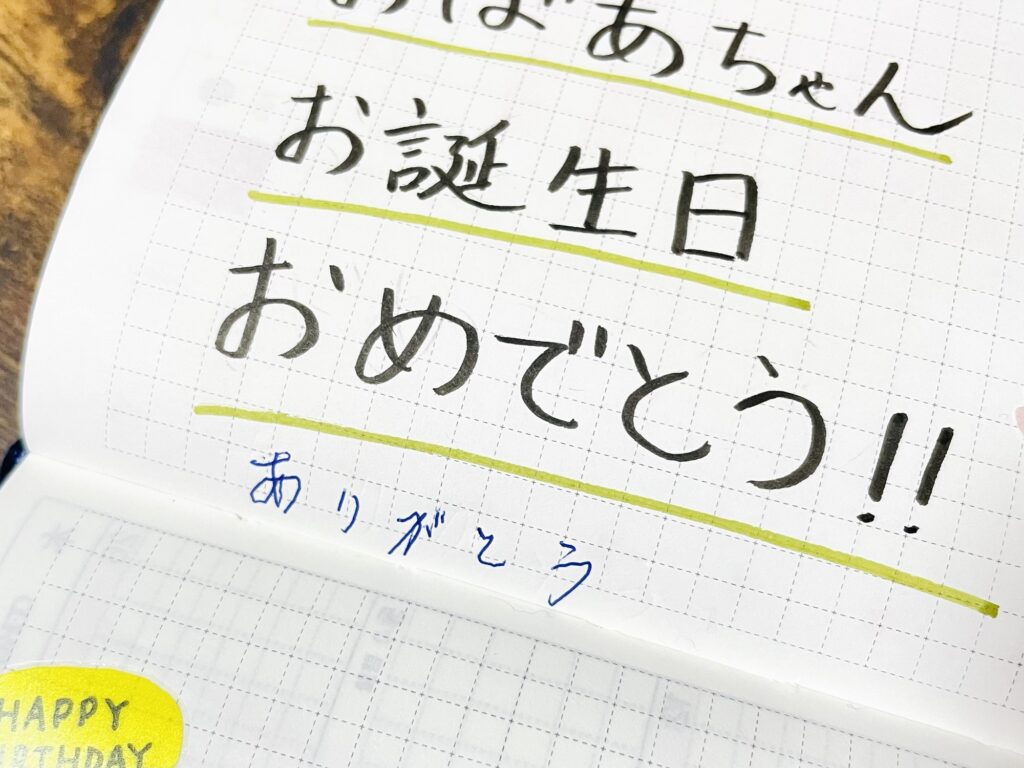 おばあちゃん
お誕生日
おめでとう!!
ありがとう
HAPPY
BIRTHDAY